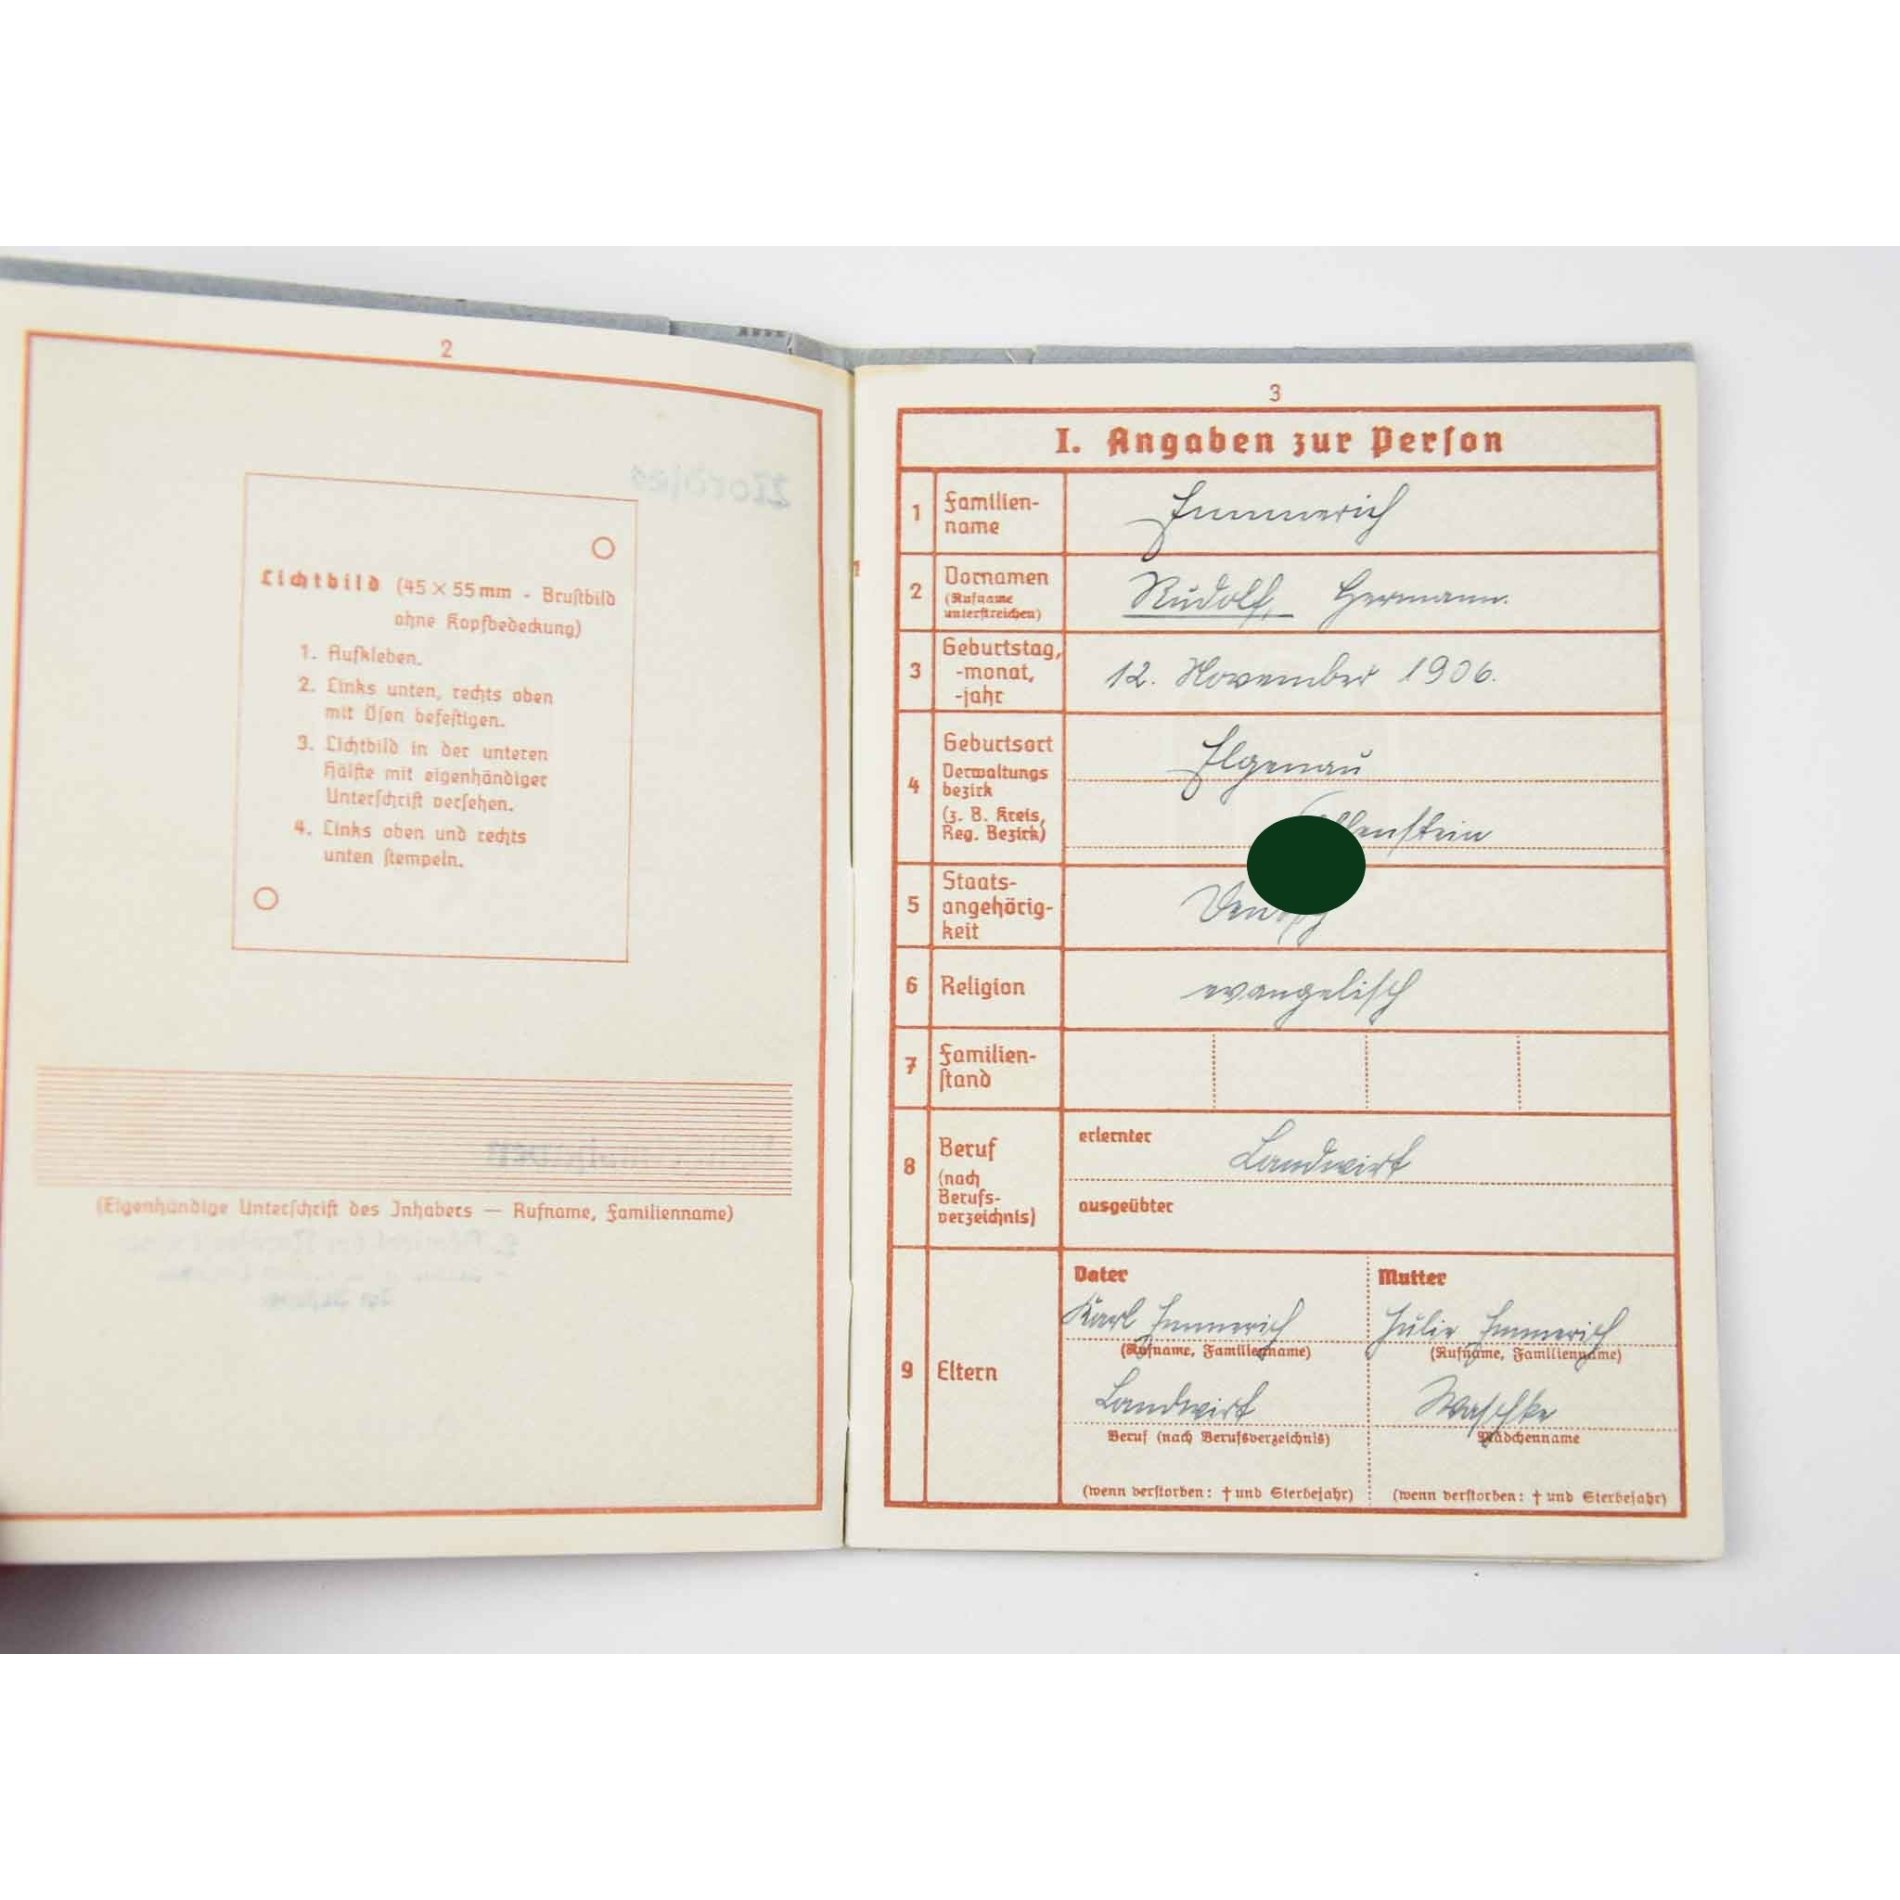 2
Lichtbild (45 × 55 mm - Brustbild
ohne Kopfbedeckung)
1. Aufkleben.
2. Links unten, rechts oben
mit Ösen befestigen.
3. Lichtbild in der unteren
Hälfte mit eigenhändiger
Unterschrift versehen.
4. Links oben und rechts
unten stempeln.
(Eigenhändige Unterschrift des Inhabers — Rufname, Familienname)
3
I. Angaben zur Person
1 Familien-
name
Emmerich
2 Vornamen
(Rufname
unterstreichen)
Rudolf, Hermann.
3 Geburtstag,
-monat,
-jahr
12. November 1906.
4 Geburtsort
Verwaltungs
bezirk
(z. B. Kreis,
Reg. Bezirk)
Elgenau
5 Staats-
angehörig-
keit
6 Religion
evangelisch
7 Familien-
stand
8 Beruf
(nach
Berufs-
verzeichnis)
erlernter Landwirt
ausgeübter
9 Eltern
Vater
Karl Emmerich
(Rufname, Familienname)
Landwirt
Beruf (nach Berufsverzeichnis)
(wenn verstorben: † und Sterbejahr)
Mutter
Julie Emmerich
(Rufname, Familienname)
Waschke
Mädchenname
(wenn verstorben: † und Sterbejahr)